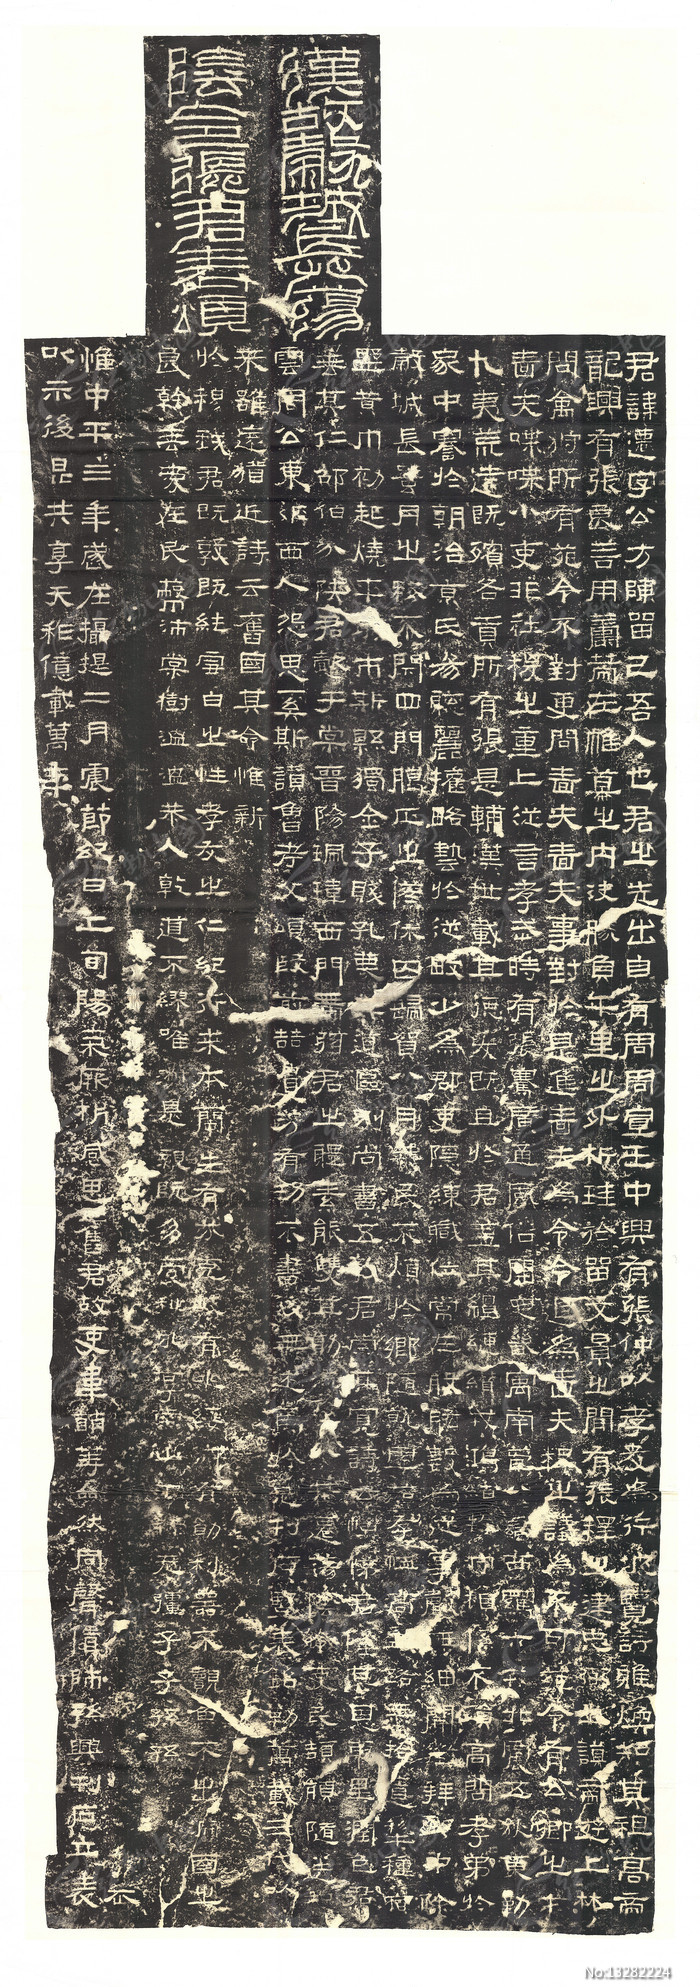 漢故穀城長蕩
陰令張君表頌
君諱遷字公方陳留己吾人也君之先出自有周周宣王中興有張仲以孝友為行披覽詩雅煥知其祖高帝
龍興有張良善用籌策在帷幕之內決勝負千里之外析珪於留文景之間有張釋之建忠弼之謨帝遊上林
問禽狩所有苑令不對更問嗇夫嗇夫事對於是進嗇夫為令令退為嗇夫釋之議為不可苑令有公卿之才
嗇夫喋喋小吏非社稷之重上從言孝武時有張騫廣通風俗開定畿寓南苞八蠻西羈六戎北震五狄東勤
九夷荒遠既殯各貢所有張是輔漢世載其德爰既且於君蓋其繵縺纘戎鴻緒牧守相係不殞高問孝弟於
家中謇於朝治京氏易聰麗權略藝於從畋少為郡吏隱練職位常在股肱數為從事聲無細聞徵拜郎中除
穀城長蠶月之務不閉四門臘正之祭休囚歸賀八月算民不煩於鄉隨就虛落存恤高年路無拾遺犁種宿
野黃巾初起燒平城市斯縣獨全子賤孔蔑其道區別尚書五教君崇其寬詩云愷悌君隆其恩東里潤色君
垂其仁邵伯分陝君懿于棠晉陽珮瑋西門帶弦君之體素能雙其勛流化八基遷蕩陰令吏民頡頏隨送如
雲周公東征西人怨思奚斯讚魯考父頌殷前喆遺芳有功不書後無述焉於是刊石豎表銘勒萬載三代以
來雖遠猶近詩云舊國其命惟新
於穆我君既敦既純雪白之性孝友之仁紀行來本蘭生有芬克岐有兆綏御有勛利器不覿魚不出淵國之
良幹垂愛在民蔽沛棠樹溫溫恭人乾道不繆唯淑是親既多受祉永享南山干祿無疆子子孫孫
惟中平三年歲在攝提二月震節紀日上旬陽氣厥析感思舊君故吏韋萌等僉然同聲賃師孫興刊石立表
以示後昆共享天祚億載萬年
No:13282224